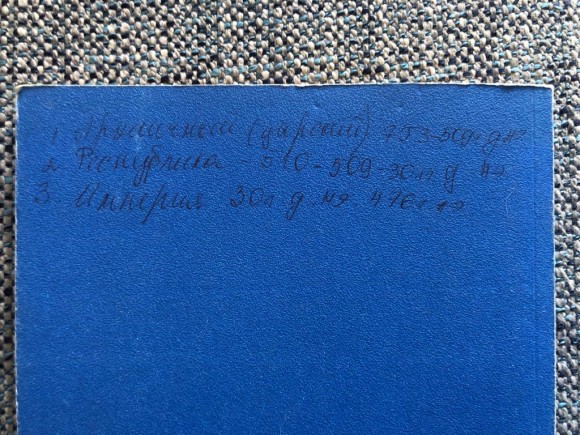 1. Архаичный (царский) 753-509г д нэ
2. Республика - 510-509-30гг д нэ
3. Империя 30г. д. нэ. 476г нэ